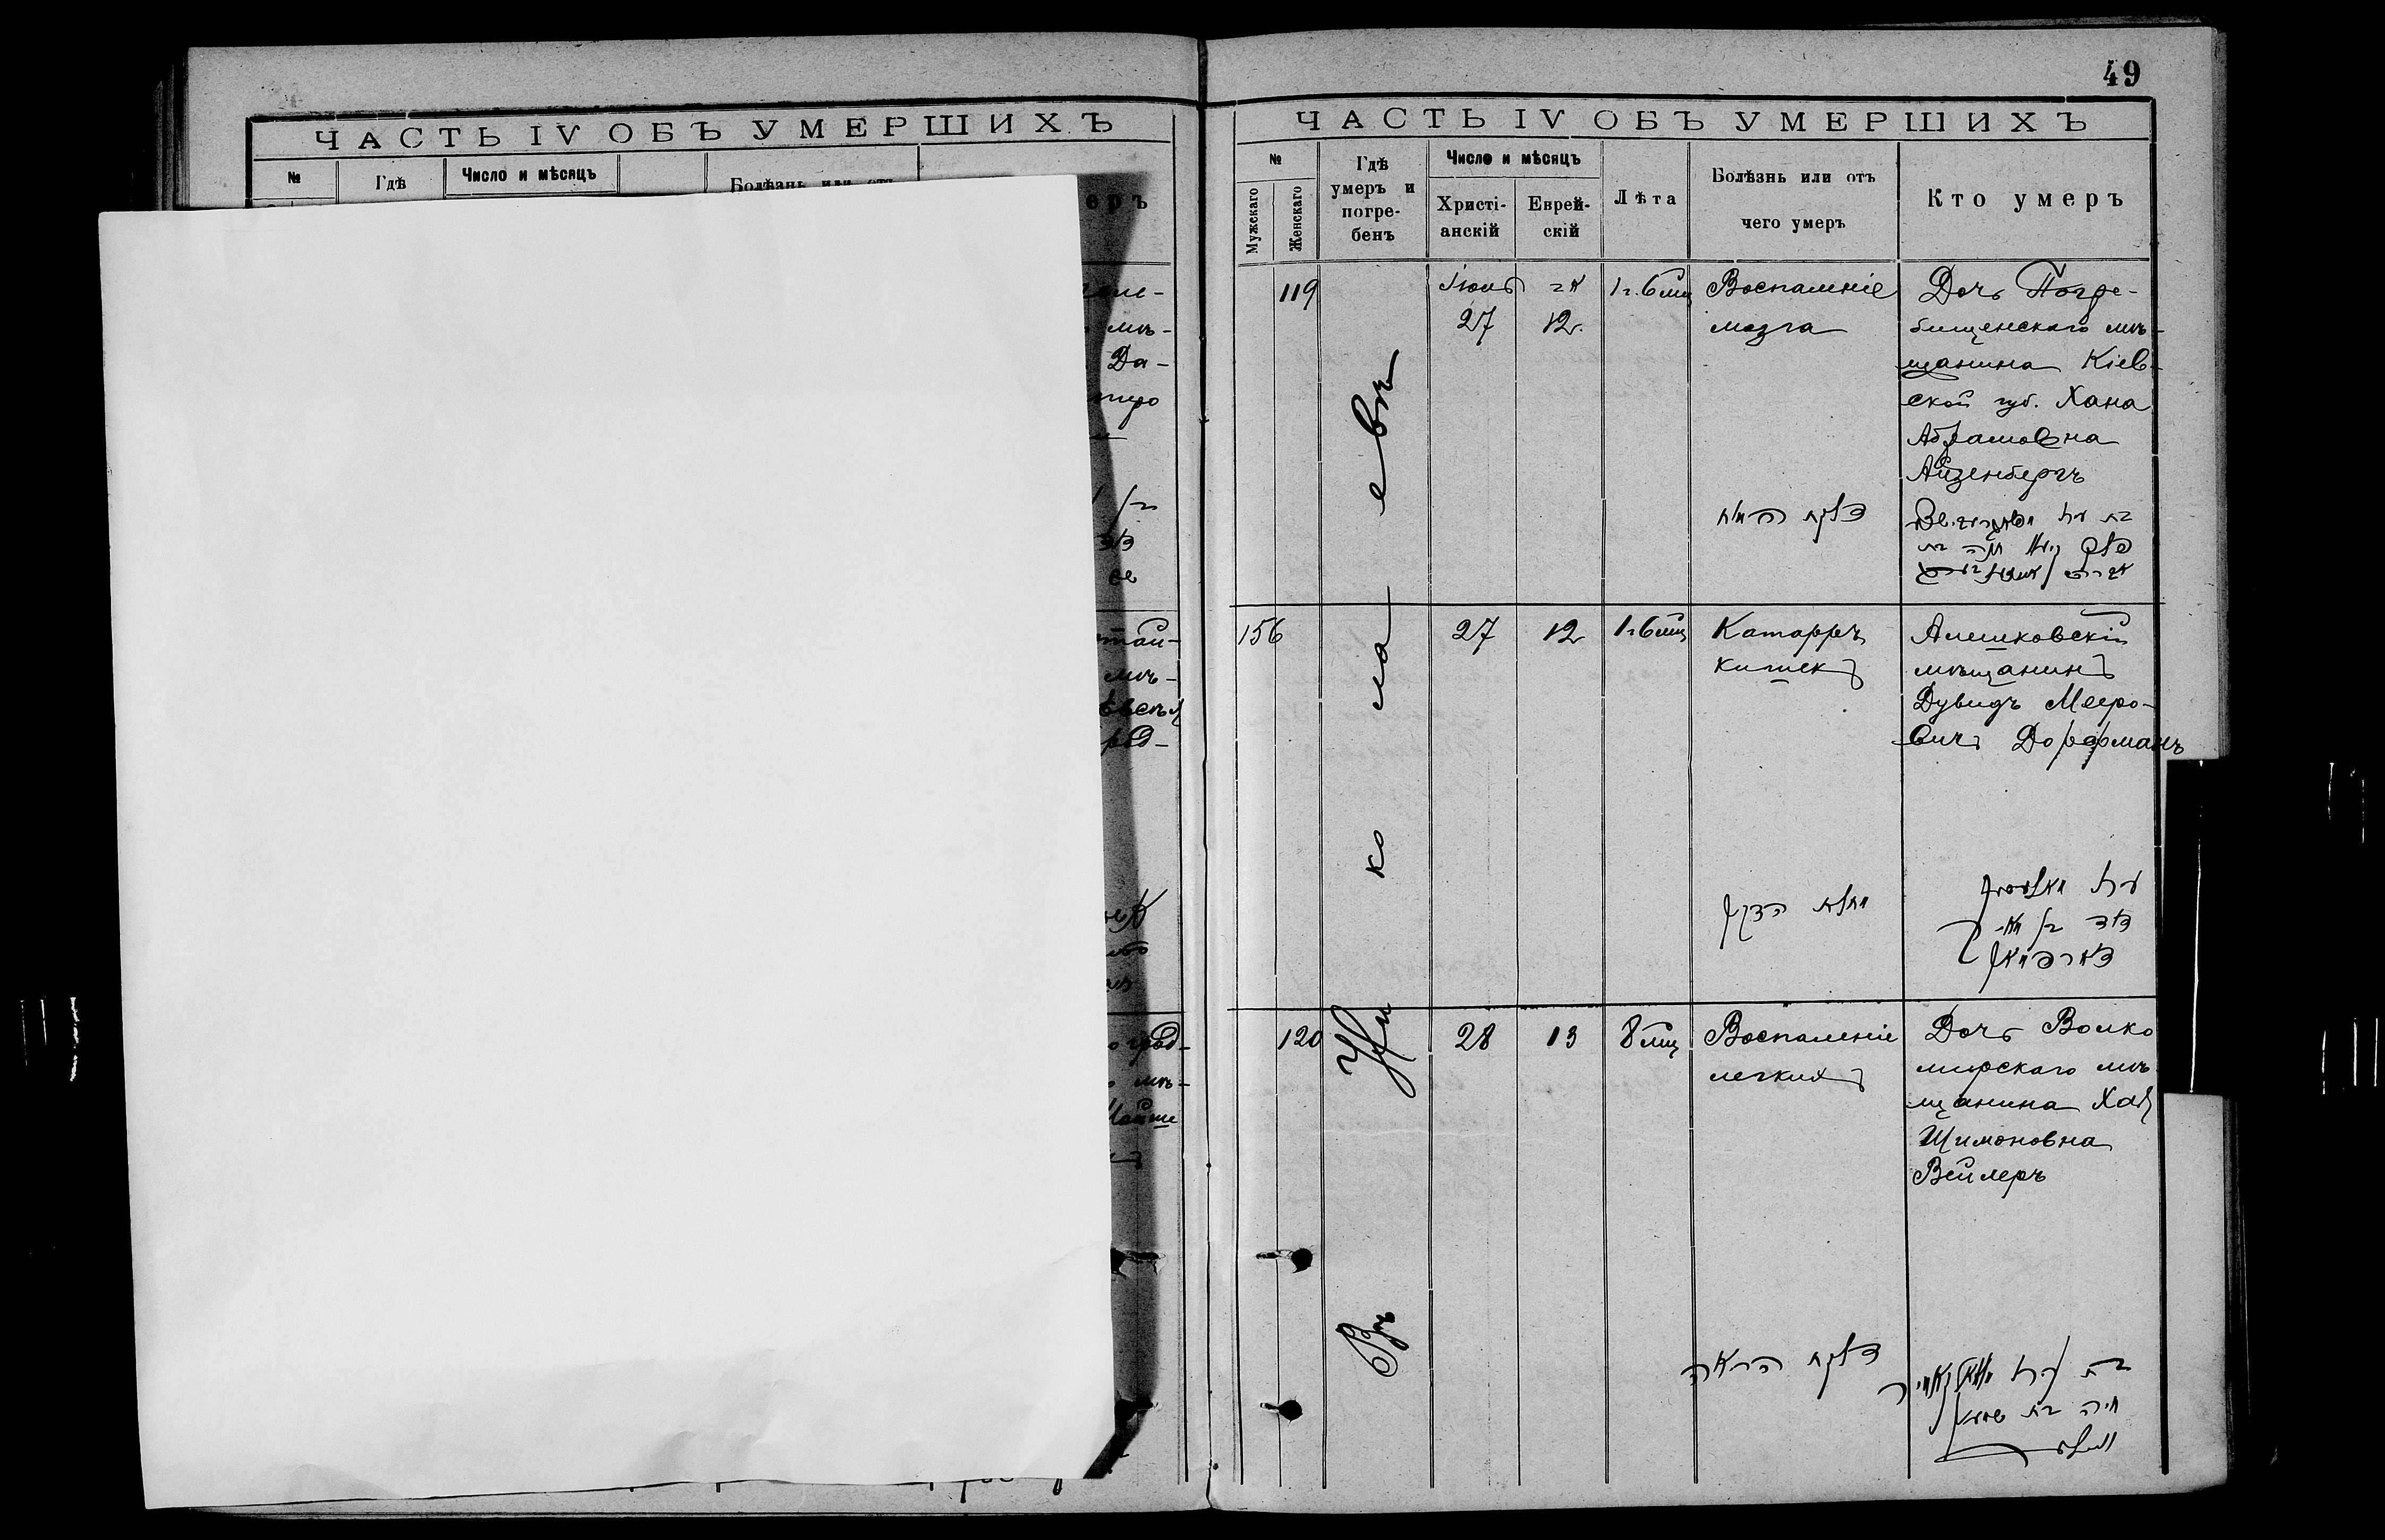 49
ЧАСТЬ IV ОБЪ УМЕРШИХЪ
№
Гдѣ
Число и мѣсяцъ
Болѣзнь или отъ
еръ
ЧАСТЬ IV ОБЪ УМЕРШИХЪ
№
Мужскаго
Женскаго
Гдѣ
умеръ и
погре-
бенъ
Число и мѣсяцъ
Христі-
анскій
Еврей-
скій
Лѣта
Болѣзнь или отъ
чего умеръ
Кто умеръ
Въ Николаевѣ
119
Іюнь
27
12
1 г. 6 мц
Воспаленіе
мозга
דלקת המוח
Дочь Погре-
бищенскаго мѣ-
щанина Кіев-
ской губ. Хана
Абрамовна
Айзенбергъ
156
27
12
1 г 6 мц
Катарръ
кишекъ
מחלת הדקין
Алешковскій
мѣщанинъ
Дувидъ Мееро-
вичъ Дорфманъ
דוד בן
דארפמאן
120
28
13
8 мц
Воспаленіе
легкихъ
דלקת הריאה
Дочь Волко
мирскаго мѣ
щанина Хая
Шимоновна
Вейлеръ
חיה בת שמעון